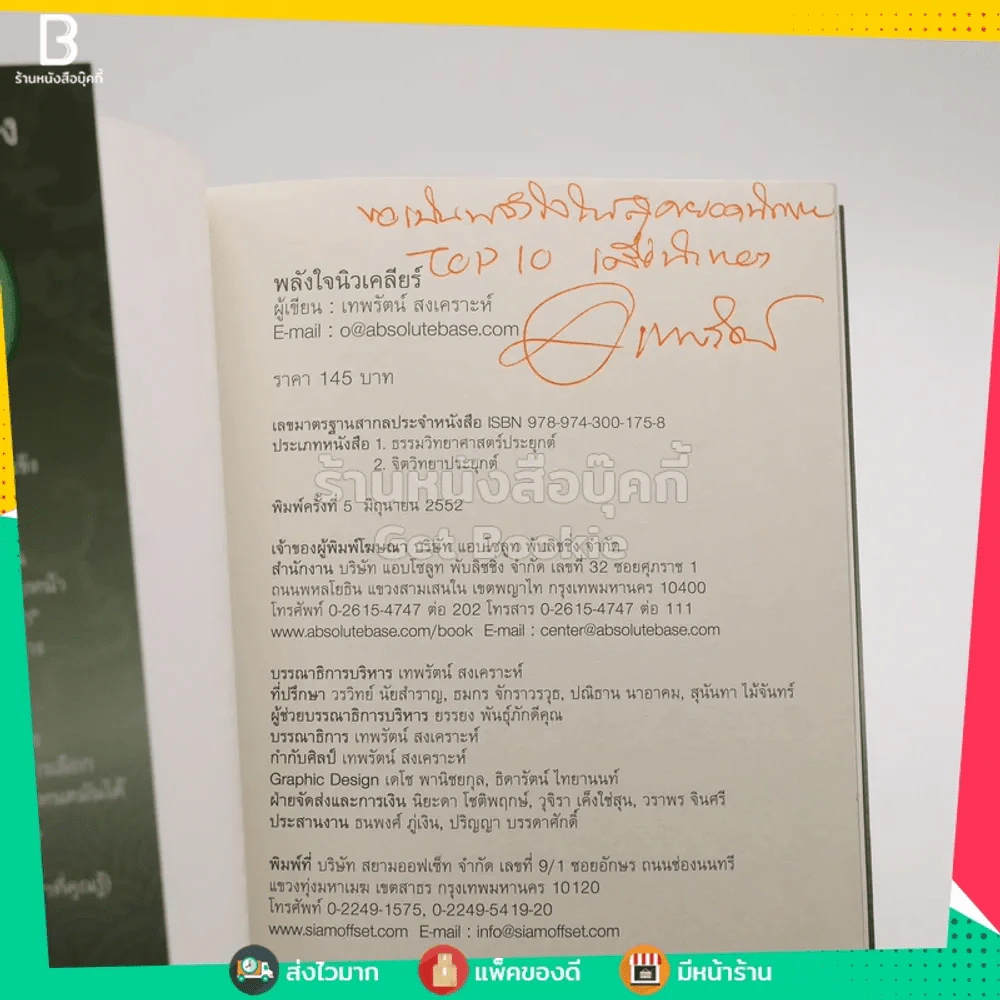 B
ร้านหนังสือบุ๊คกี้
ง
ขอเป็นพลังใจให้สุดยอดนักขาย
TOP 10
พลังใจนิวเคลียร์
ผู้เขียน : เทพรัตน์ สงเคราะห์
E-mail : o@absolutebase.com
ราคา 145 บาท
เลขมาตรฐานสากลประจำหนังสือ ISBN 978-974-300-175-8
ประเภทหนังสือ 1. ธรรมวิทยาศาสตร์ประยุกต์
2. จิตวิทยาประยุกต์
ร้านหนังสือบุ๊คกี้
พิมพ์ครั้งที่ 5 มิถุนายน 2552
Get Bookie
เจ้าของผู้พิมพ์โฆษณา บริษัท แอบโซลูท พับลิชชิ่ง จำกัด
สำนักงาน บริษัท แอบโซลูท พับลิชชิ่ง จำกัด เลขที่ 32 ซอยศุภราช 1
ถนนพหลโยธิน แขวงสามเสนใน เขตพญาไท กรุงเทพมหานคร 10400
โทรศัพท์ 0-2615-4747 ต่อ 202 โทรสาร 0-2615-4747 ต่อ 111
www.absolutebase.com/book E-mail : center@absolutebase.com
บรรณาธิการบริหาร เทพรัตน์ สงเคราะห์
ที่ปรึกษา วรวิทย์ นัยสำราญ, ธมกร จักราวรวุธ, ปณิธาน นาอาคม, สุนันทา ไม้จันทร์
ผู้ช่วยบรรณาธิการบริหาร ยรรยง พันธุ์ภักดีคุณ
บรรณาธิการ เทพรัตน์ สงเคราะห์
กำกับศิลป์ เทพรัตน์ สงเคราะห์
Graphic Design เดโช พานิชยกุล, ธิดารัตน์ ไทยานนท์
ฝ่ายจัดส่งและการเงิน นิยะดา โชติพฤกษ์, วุจิรา เค็งใช่สุน, วราพร จินศรี
ประสานงาน ธนพงศ์ ภู่เงิน, ปริญญา บรรดาศักดิ์
พิมพ์ที่ บริษัท สยามออฟเซ็ท จำกัด เลขที่ 9/1 ซอยอักษร ถนนช่องนนทรี
แขวงทุ่งมหาเมฆ เขตสาธร กรุงเทพมหานคร 10120
โทรศัพท์ 0-2249-1575, 0-2249-5419-20
www.siamoffset.com E-mail : info@siamoffset.com
ส่งไวมาก
แพ็คของดี
มีหน้าร้าน